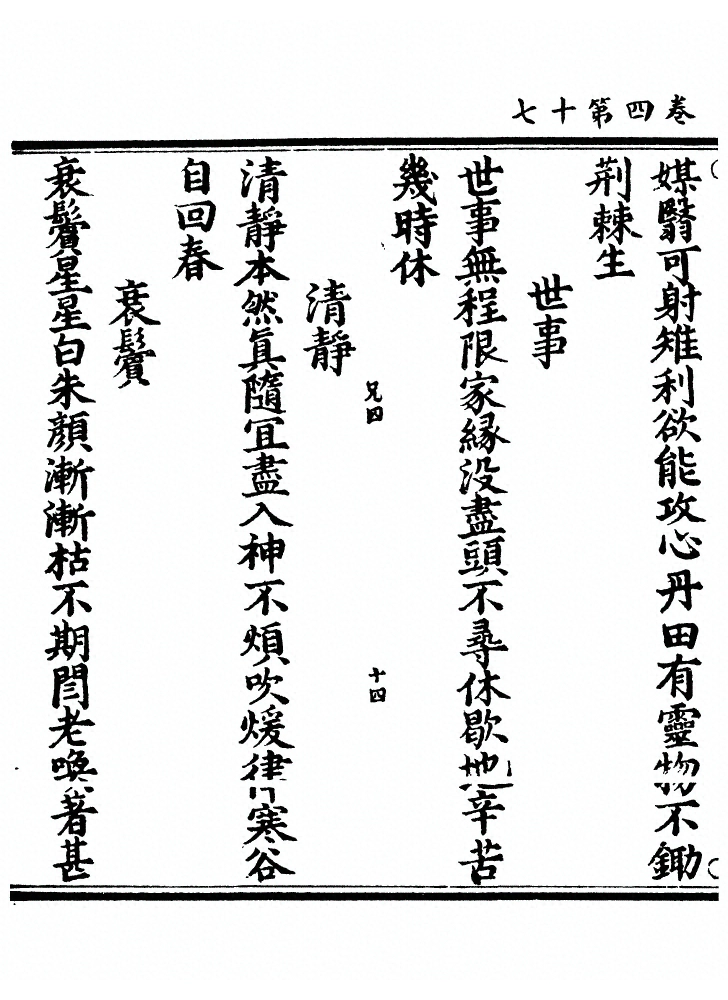 七十第四卷
媒翳可射雉利欲能攻心丹田有靈物不鋤
荆棘生
世事
世事無程限家緣没盡頭不尋休歇地辛苦
幾時休
兄四
十四
清靜
清靜本然眞隨宜盡入神不煩吹煖律寒谷
自回春
衰鬢
衰鬢星星白朱顔漸漸枯不期閻老喚著甚